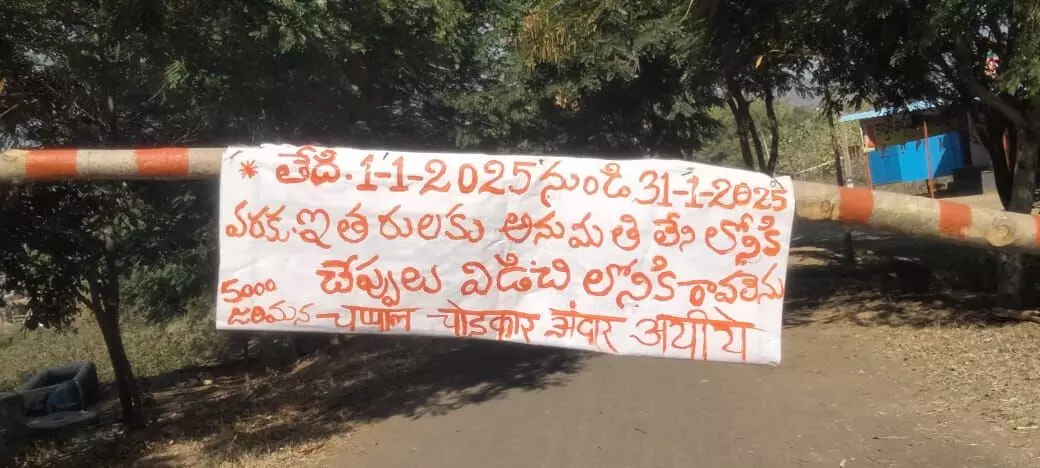 * తేది. 1-1-2025 నుండి 31-1-2025
వరకు. ఇతరులకు అనుమతి లేని లోనికి
చేప్పులు విడిచి లోనికి రావలెను
5000
జరిమన चप्पल चोडकार अंदार अयीये